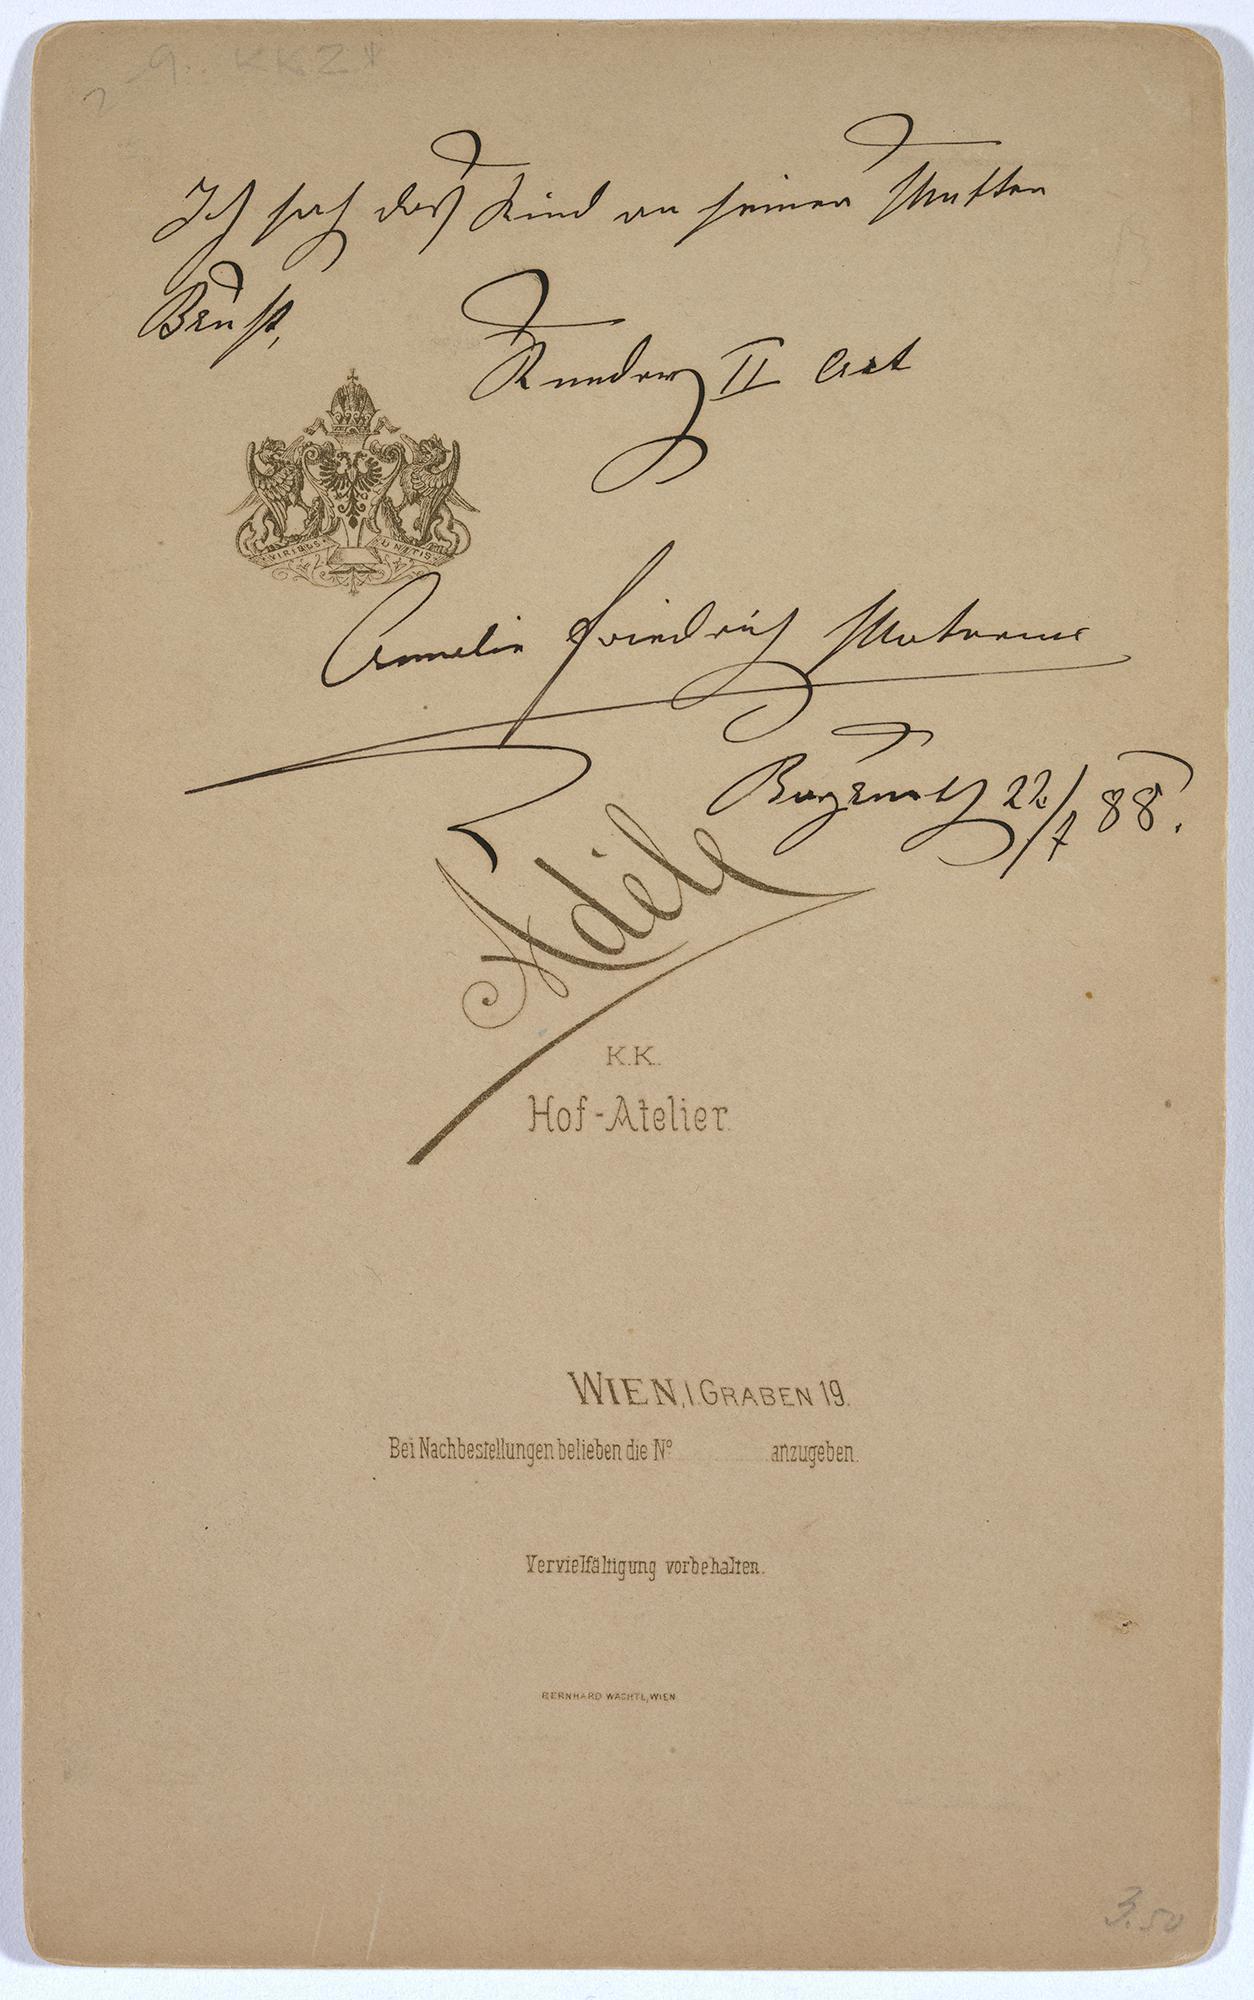 Ich sah das Kind an seiner Mutter
Brust,
Kundry II Act
VIRIBUS UNITIS
Amalie Friedrich Materna
Bayreuth 22/7 88.
Adèle
K.K.
Hof-Atelier
WIEN, I. GRABEN 19.
Bei Nachbestellungen belieben die Nº anzugeben.
Vervielfältigung vorbehalten.
BERNHARD WACHTL, WIEN
3.50